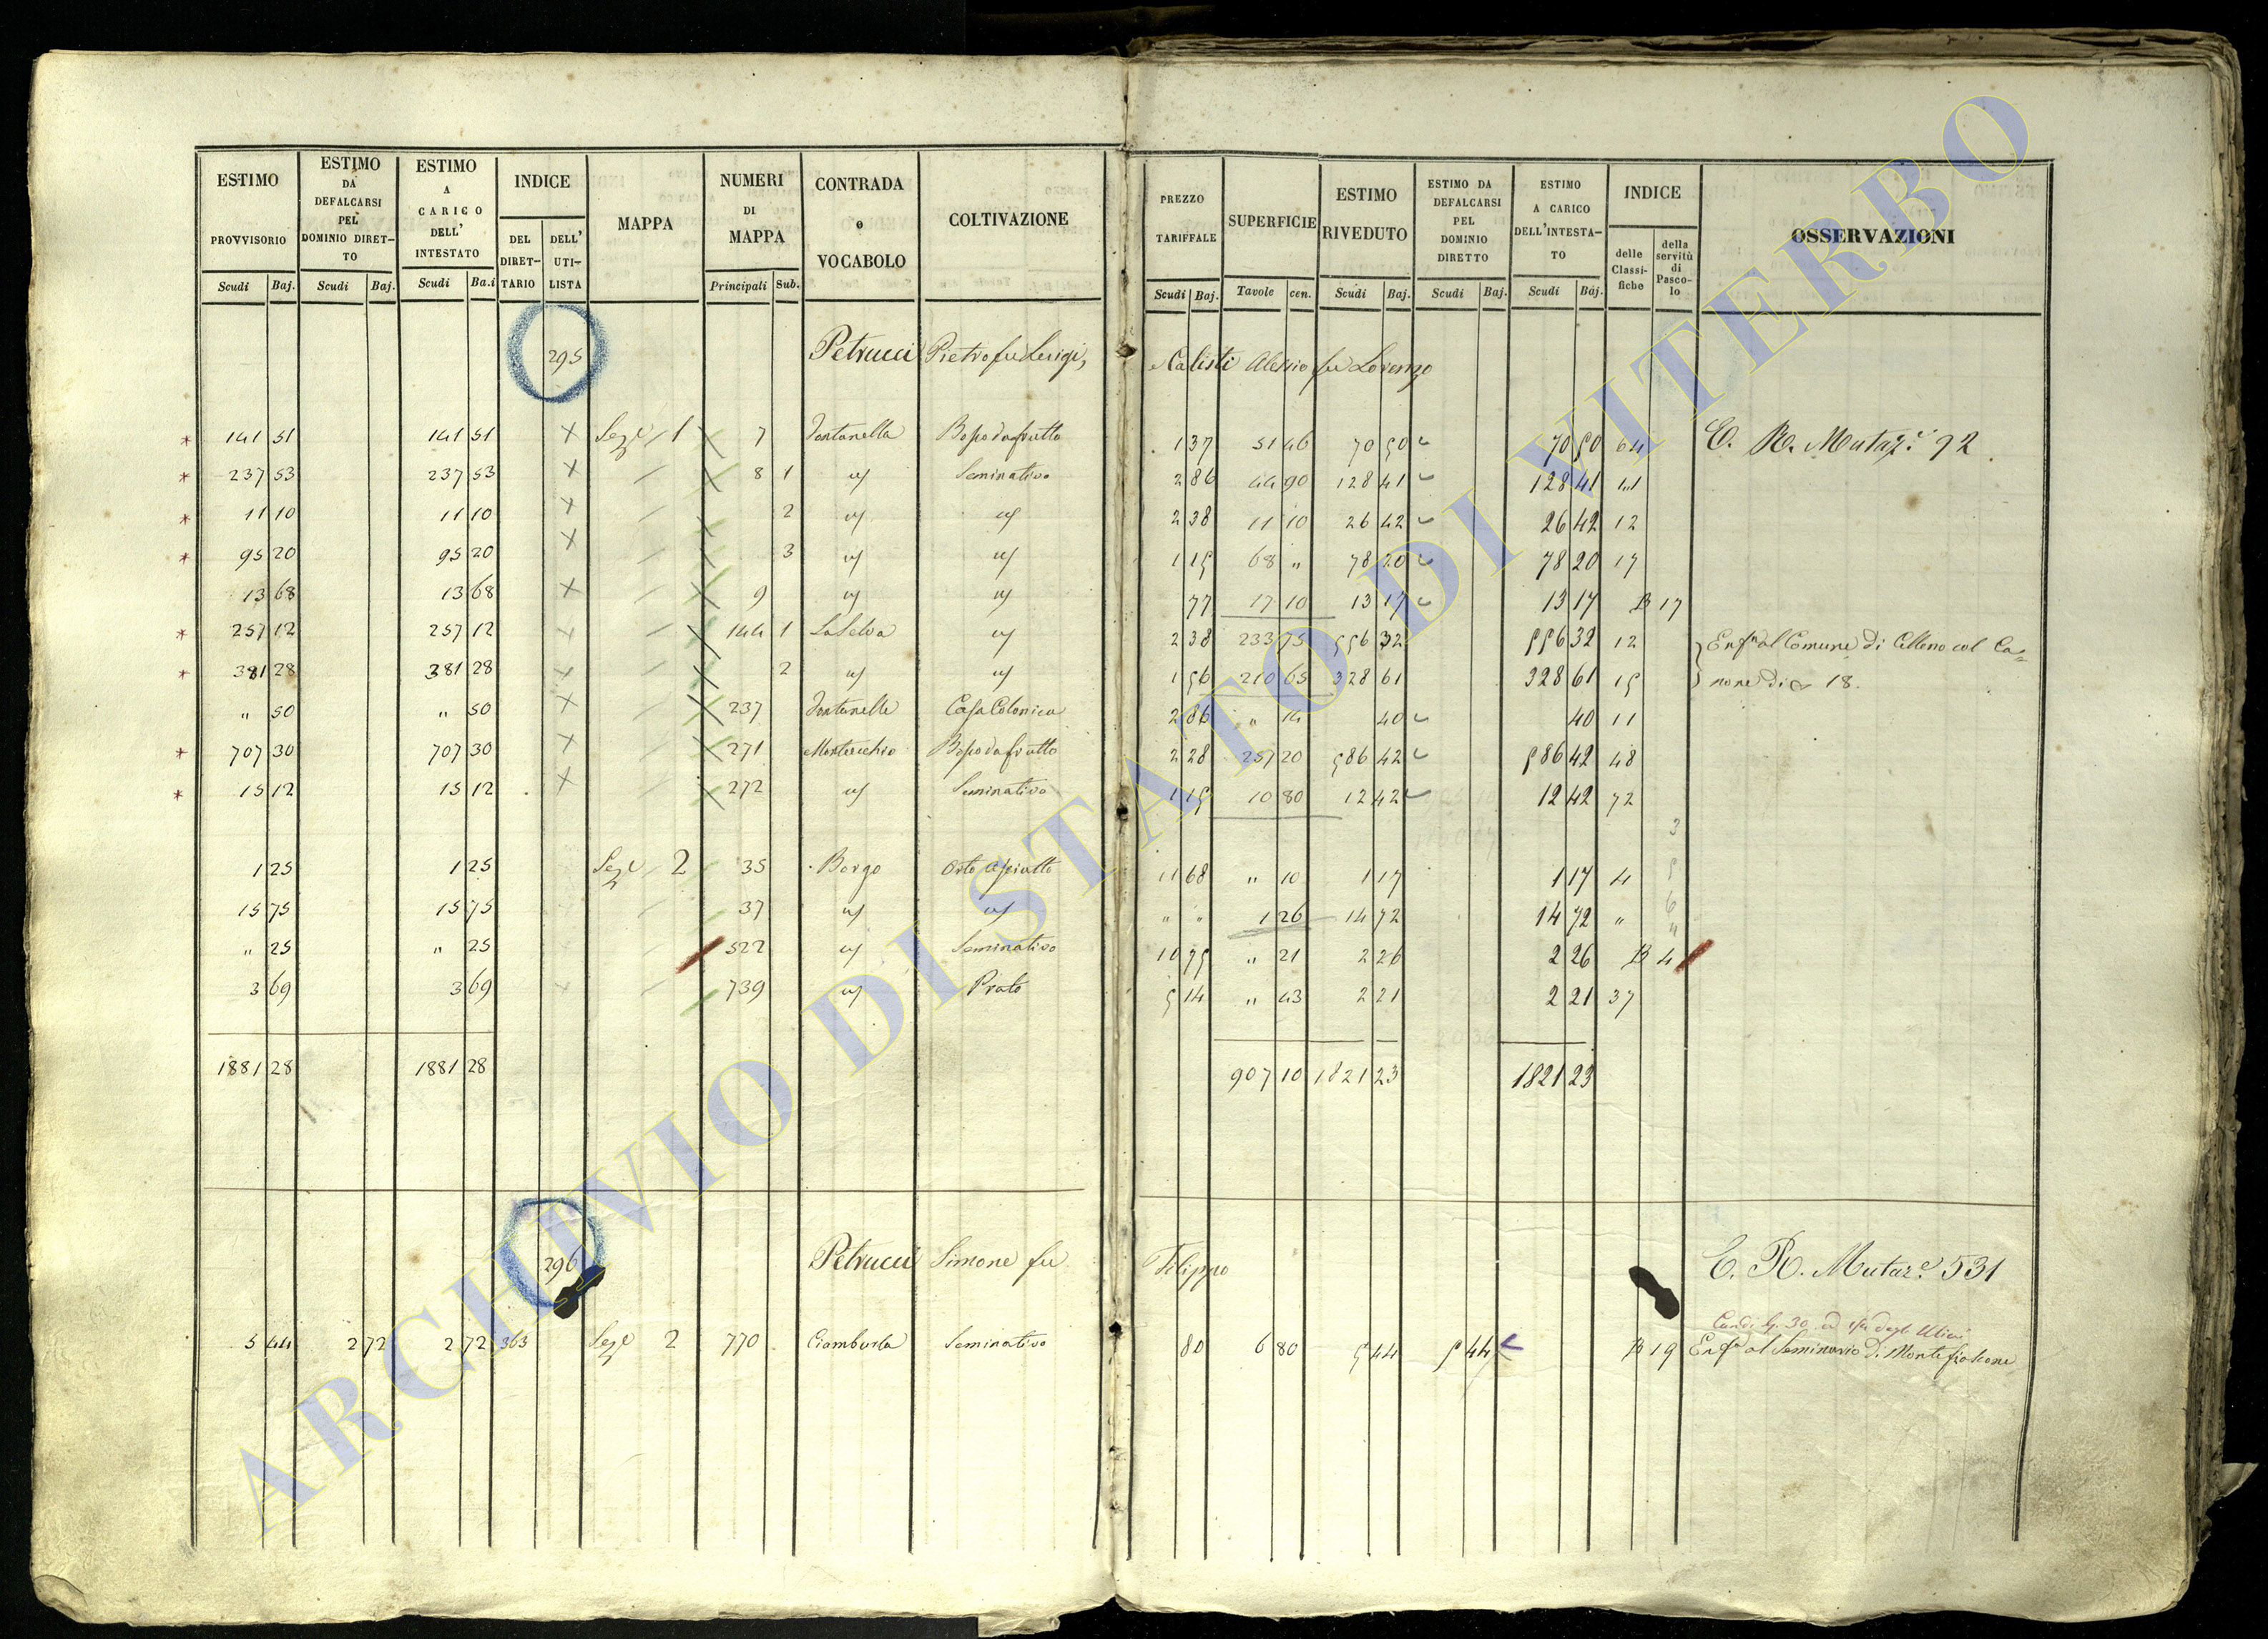 ESTIMO PROVVISORIO Scudi Baj.
ESTIMO DA DEFALCARSI PEL DOMINIO DIRET-TO Scudi Baj.
ESTIMO A CARICO DELL' INTESTATO Scudi Ba.i
INDICE DEL DIRET-TARIO DELL' UTI-LISTA
MAPPA
NUMERI DI MAPPA Principali Sub.
CONTRADA o VOCABOLO
COLTIVAZIONE
PREZZO TARIFFALE Scudi Baj.
SUPERFICIE Tavole cen.
ESTIMO RIVEDUTO Scudi Baj.
ESTIMO DA DEFALCARSI PEL DOMINIO DIRETTO Scudi Baj.
ESTIMO A CARICO DELL'INTESTA-TO Scudi Baj.
INDICE delle Classi-fiche della servitù di Pasco-lo
OSSERVAZIONI
295 Petrucci Pietro fu Luigi, Calisti Alessio fu Lorenzo
* 141 51 141 51 X Seze 1 X 7 Fontanella 1 37 51 46 70 50 70 50 64 C. R. Mutaz.e 92
* 237 53 237 53 X X 8 1 " Seminativo 2 86 44 90 128 41 128 41 11
* 11 10 11 10 X X 2 " " 2 38 11 10 26 42 26 42 12
* 95 20 95 20 X X 3 " " 1 15 68 " 78 20 78 20 17
13 68 13 68 X X 9 " " 77 17 10 13 17 13 17 B 17
* 257 12 257 12 X X 144 1 La Selva " 2 38 233 75 556 32 556 32 12 Enf.a al Comune di Celleno col Ca=
* 381 28 381 28 X X 2 " " 1 56 210 65 328 61 328 61 15 none di 18.
" 50 " 50 X X 237 Fontanelle Casa Colonica 2 86 " 14 40 40 11
* 707 30 707 30 X X 271 Montecchio 2 28 257 20 586 42 586 42 48
* 15 12 15 12 X X 272 " Seminativo 1 15 10 80 12 42 12 42 72
1 25 1 25 Seze 2 35 Borgo Orto asciutto 11 68 " 10 1 17 1 17 4
15 75 15 75 37 " " " " 1 26 14 72 14 72 "
" 25 " 25 522 " Seminativo 10 75 " 21 2 26 2 26 B 4
3 69 3 69 739 " Prato 5 14 " 43 2 21 2 21 37
1881 28 1881 28 907 10 1821 23 1821 23
296 Petrucci Simone fu Filippo C. R. Mutaz.e 531
5 44 2 72 2 72 363 Seze 2 770 Seminativo 80 6 80 5 44 5 44 B 19 Enf.a al Seminario di Montefiascone
ARCHIVIO DI STATO DI VITERBO